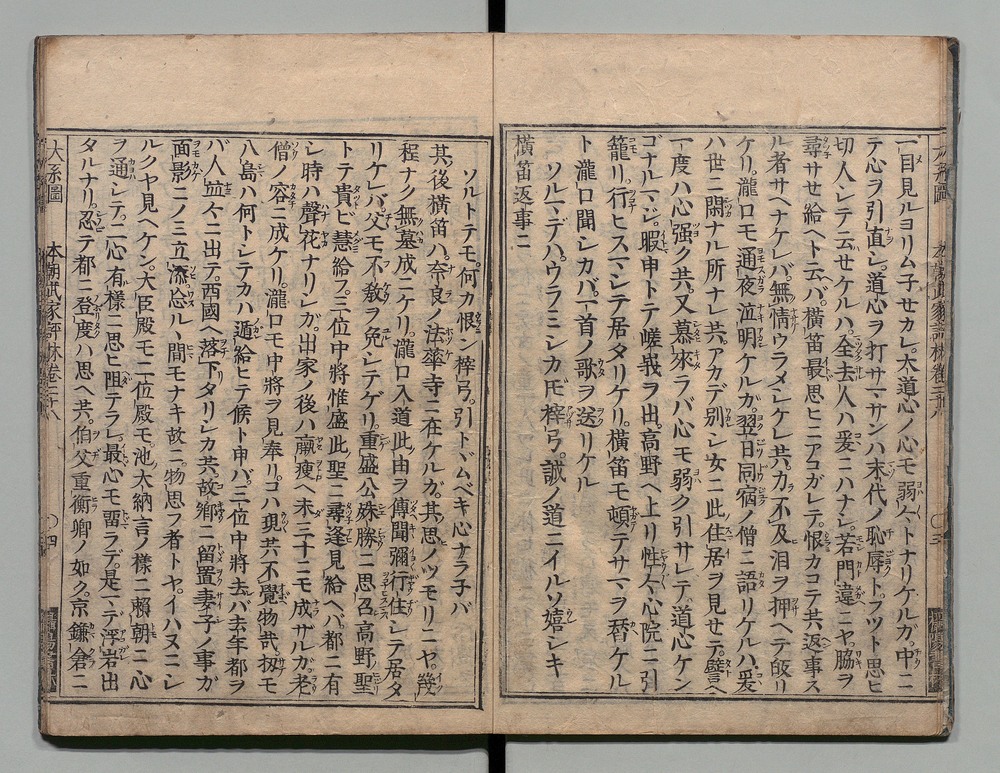 一目見ルヨリムチセカレ。大道心ノ心モ弱々トナリケルカ。中ニ
テ心ヲ引直シ。道心ヲ打サマサンハ末代ノ恥辱トフツト思ヒ
切人シテ云せケルハ。全去人ハ爰ニハナシ。若門違ニヤ。脇ヲ
尋サせ給ヘト云バ。横笛最思ヒニアコガレテ。恨カコテ共返事ス
ル者サヘナケレバ。無情ウラメシケレ共。力不及泪ヲ押ヘテ皈リ
ケリ。瀧口モ通夜泣明ケルガ。翌日同宿ノ僧ニ語リケルハ。爰
ハ世ニ閑ナル所ナレ共。アカデ別レシ女ニ此住居ヲ見せテ。譬ヘ
一度ハ心強ク共。又慕來ラバ心モ弱ク引サレテ。道心ケン
ゴナルマジ。暇申トテ嵯峩ヲ出。高野ヘ上リ性々心院ニ引
籠リ。行ヒスマシテ居タリケリ。横笛モ頓テサマヲ替ケル
ト瀧口聞シカバ。一首ノ歌ヲ送リケル
ソルマデハ。ウラミシカドモ梓弓。誠ノ道ニイルソ嬉シキ
横笛返事ニ
大系圖
本朝武家評林卷三十八
〇三
ソルトテモ。何カ恨ン梓弓。引トドムベキ心ナラ子バ
其後横笛ハ。奈良ノ法華寺ニ在ケルガ。其思ノツモリニヤ。幾
程ナク無墓成ニケリ。瀧口入道此由ヲ傳聞彌行住シテ居タ
リケレバ。父モ不敎ヲ免シテゲリ。重盛公殊勝ニ思召。高野聖
トテ貴ビ慧給フ。三位中將惟盛此聖ニ尋逢見給ヘバ。都ニ有
シ時ハ聲花ナリシガ。出家ノ後ハ羸痩ヘ未三十ニモ成サルガ。老
僧ノ容ニ成ケリ。瀧口モ中將ヲ見奉リ。コハ現共不覺物哉。扨モ
八島ハ何トシテカハ遁給ヒテ候ト申バ。三位中將去バ去年都ヲ
バ人並々ニ出テ。西國ヘ落下タリシカ共。故鄕ニ留置妻子ノ事ガ
面影ニノミ立添。忘ルヽ間モナキ故ニ。物思フ者トヤ。イハヌニシ
ルクヤ見ヘケン。大臣殿モ二位殿モ。池大納言ノ樣ニ賴朝ニ心
ヲ通シテ。二心有樣ニ思ヒ阻テラレ。最心モ畱ラデ。是マデ浮岩出
タルナリ。忍テ都ニ登度ハ思ヘ共。伯父重衡卿ノ如ク。京鎌倉ニ
大系圖
本朝武家評林卷三十八
〇四